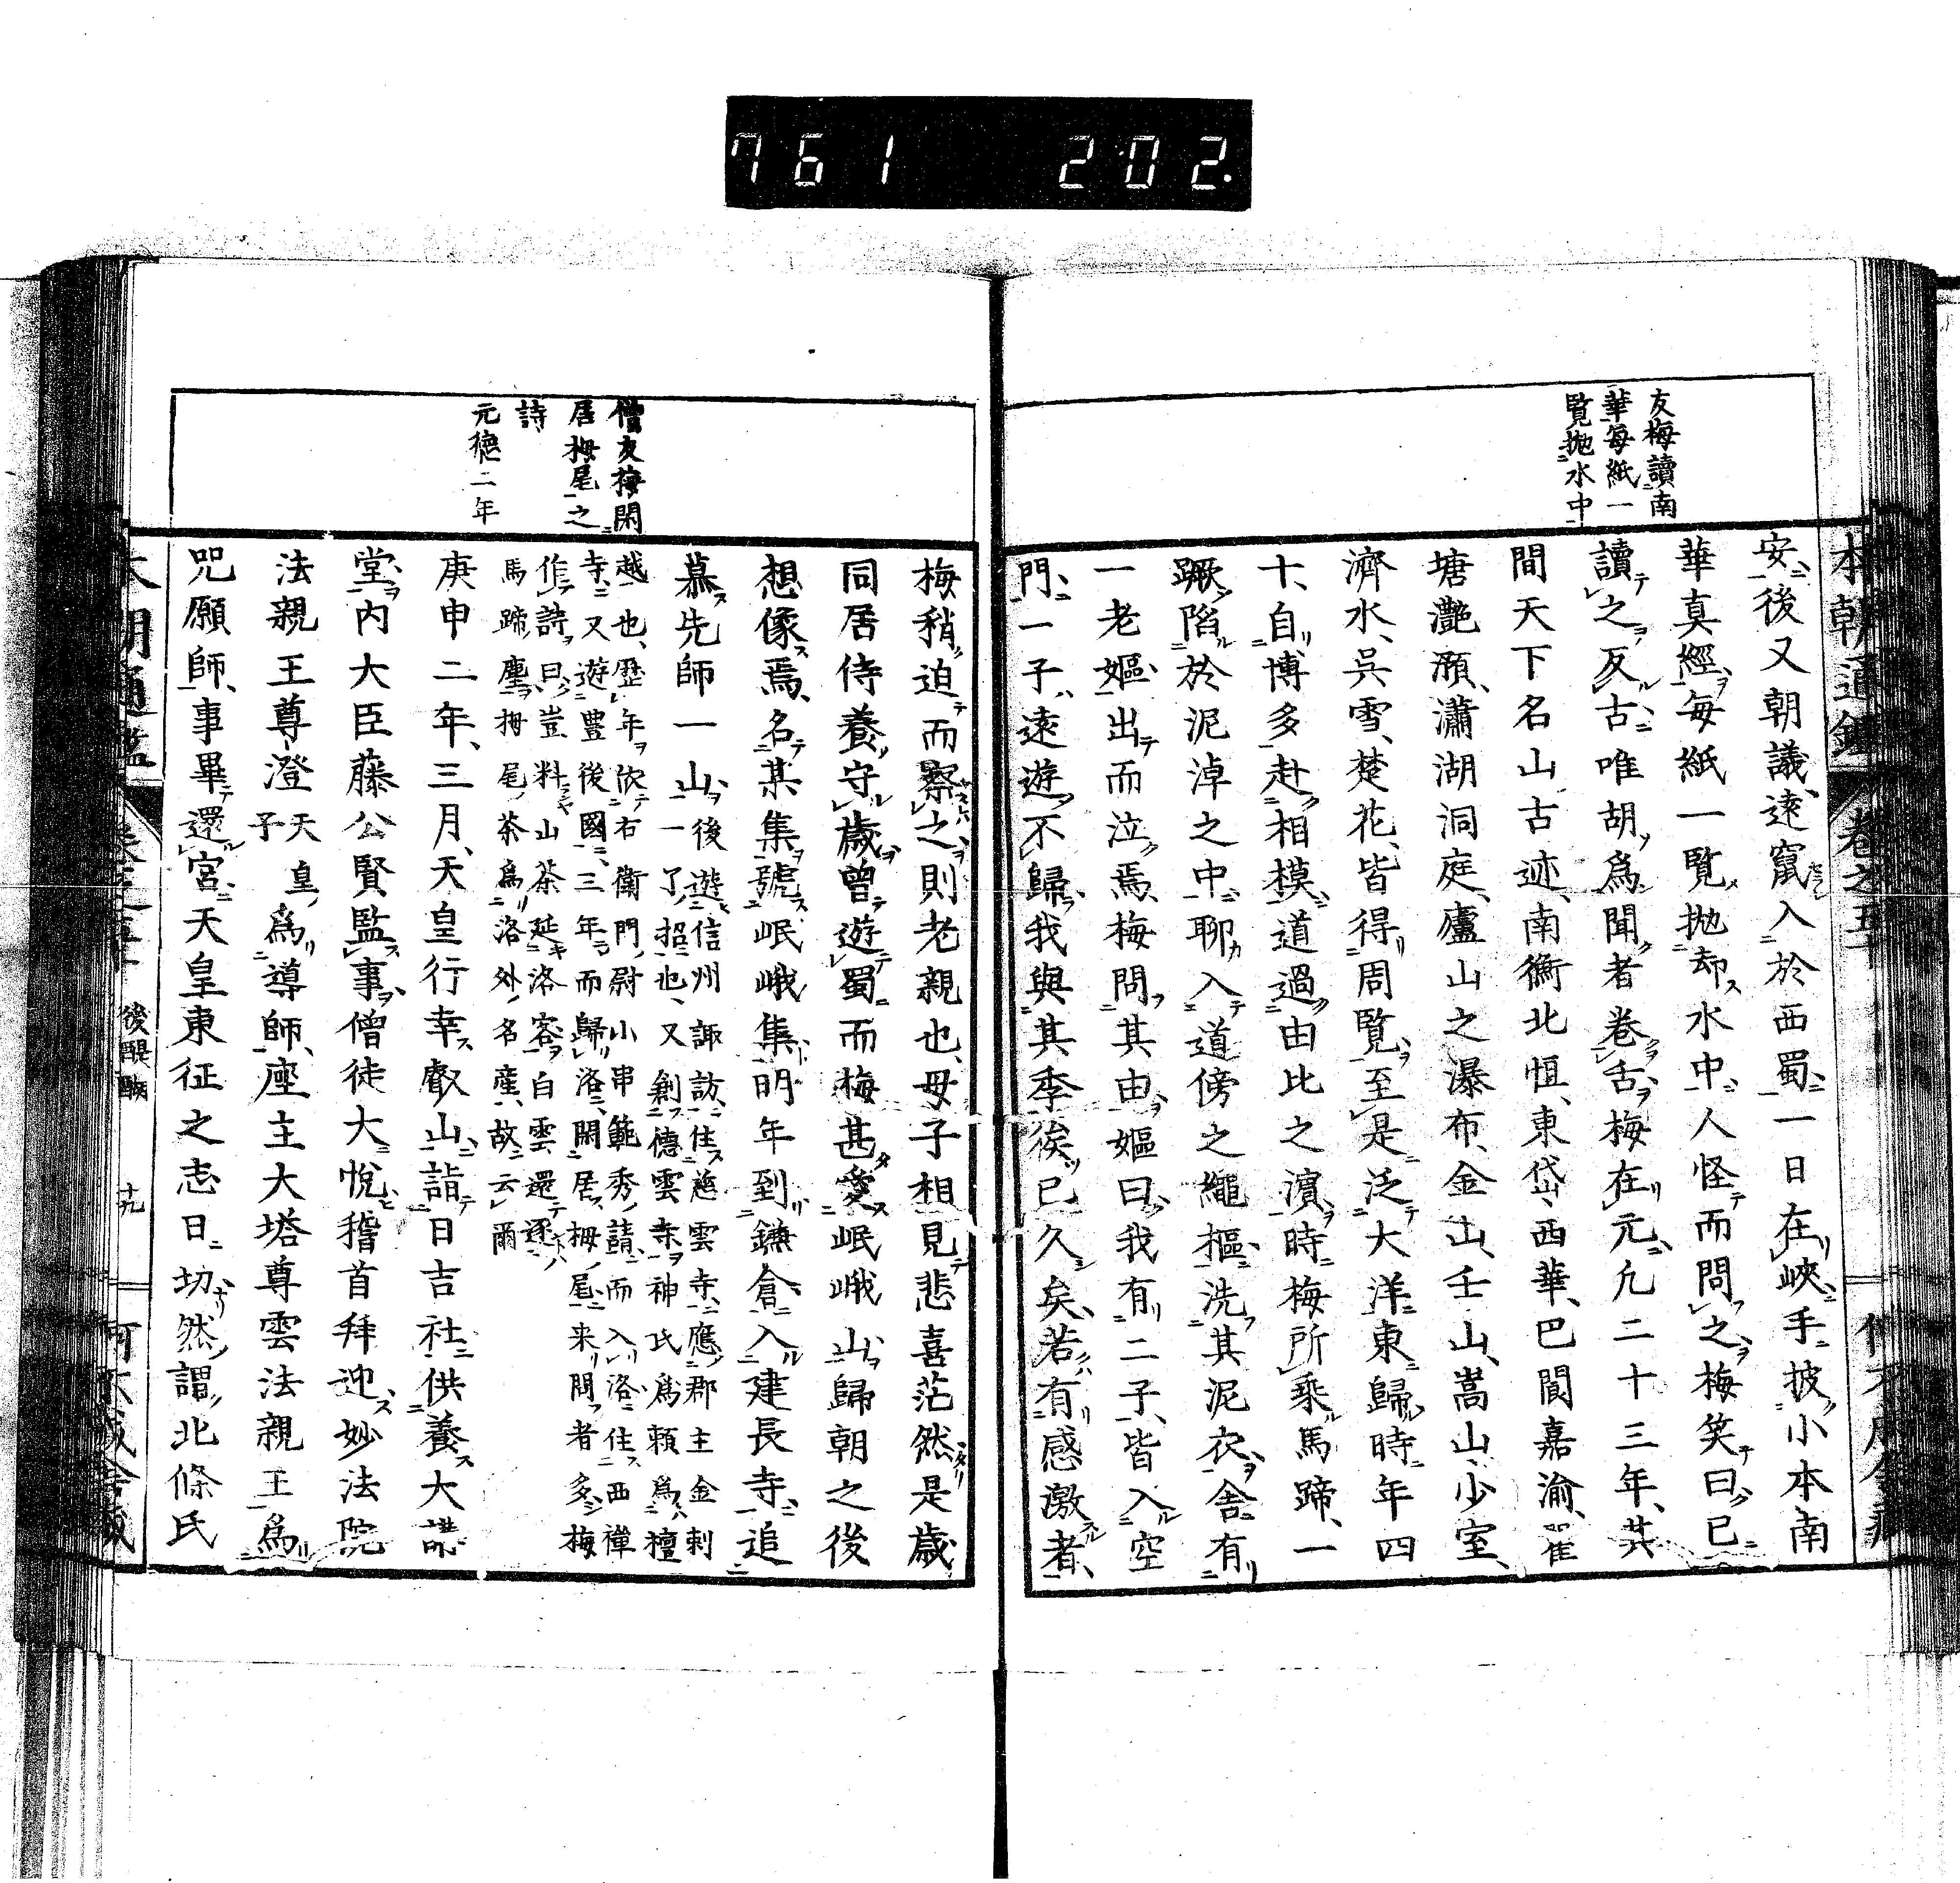 761 202.
友梅讀南
華每紙一
覽抛水中
本朝通鑑 卷之五十
安後又朝議遠竄入於西蜀一日在峽手披小本南
華真經每紙一覽抛却水中人怪而問之梅笑曰已
讀之反古唯胡爲聞者卷舌梅在元凢二十三年其
間天下名山古迹南衡北恒東岱西華巴閬嘉渝瞿
塘灔澦瀟湖洞庭廬山之瀑布金山壬山嵩山少室
濟水吳雪楚花皆得周覽至是泛大洋東歸時年四
十自博多赴相模道過由比之濵時梅所乘馬蹄一
蹶陷於泥淖之中聊入道傍之繩樞洗其泥衣舍有
一老嫗出而泣焉梅問其由嫗曰我有二子皆入空
門一子遠遊不歸我與其季俟已久矣若有感激者
僧友梅閑
居栂尾之
詩
元德二年
梅稍迫而察之則老親也母子相見悲喜茫然是歲
同居侍養守歲曾遊蜀而梅甚愛岷峨山歸朝之後
想像焉名其集號岷峨集明年到鎌倉入建長寺追
慕先師一山後遊信州諏訪住慈雲寺應郡主金刺
一了招也又剏德雲寺神氏爲頼爲檀
越也歷年依右衞門尉小串範秀請而入洛住西禪
寺又遊豊後國三年而歸洛閑居栂尾来問者多梅
作詩曰豈料山茶延洛客白雲還逐
馬蹄塵栂尾茶爲洛外名產故云爾
庚申二年三月天皇行幸叡山詣日吉社供養大講
堂内大臣藤公賢監事僧徒大悅稽首拜迎妙法院
法親王尊澄天皇子爲導師座主大塔尊雲法親王爲
咒願師事畢還宮天皇東征之志日切然謂北條氏
後醍醐 十九